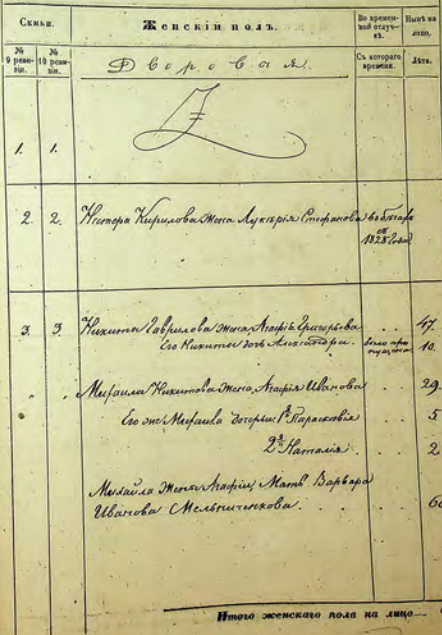 Семьи.
Женскій полъ.
Во времен-
ной отлуч-
кѣ.
Нынѣ на
лицо,
№
9 реви-
зіи.
№
10 реви-
зіи.
Дворовая
Съ котораго
времени.
Лѣта.
1. 1.
2. 2. Нестора Кирилова жена Лукерія Стефанова въ бѣгахъ
съ
1828 года
3. 3. Никиты Гаврилова жена Агафія Григорьева . . 47.
Его Никиты дочь Александра. было про
пущена 10.
Михаила Никитова жена, Агафія Иванова . . 29.
Его же Михаила дочерьи 1я Параскевія . . 5
2я Наталія . . 2
Михайла жены Агафіи, Мать Варвара
Иванова Мельниченкова. . .
Итого женскаго пола на лицо